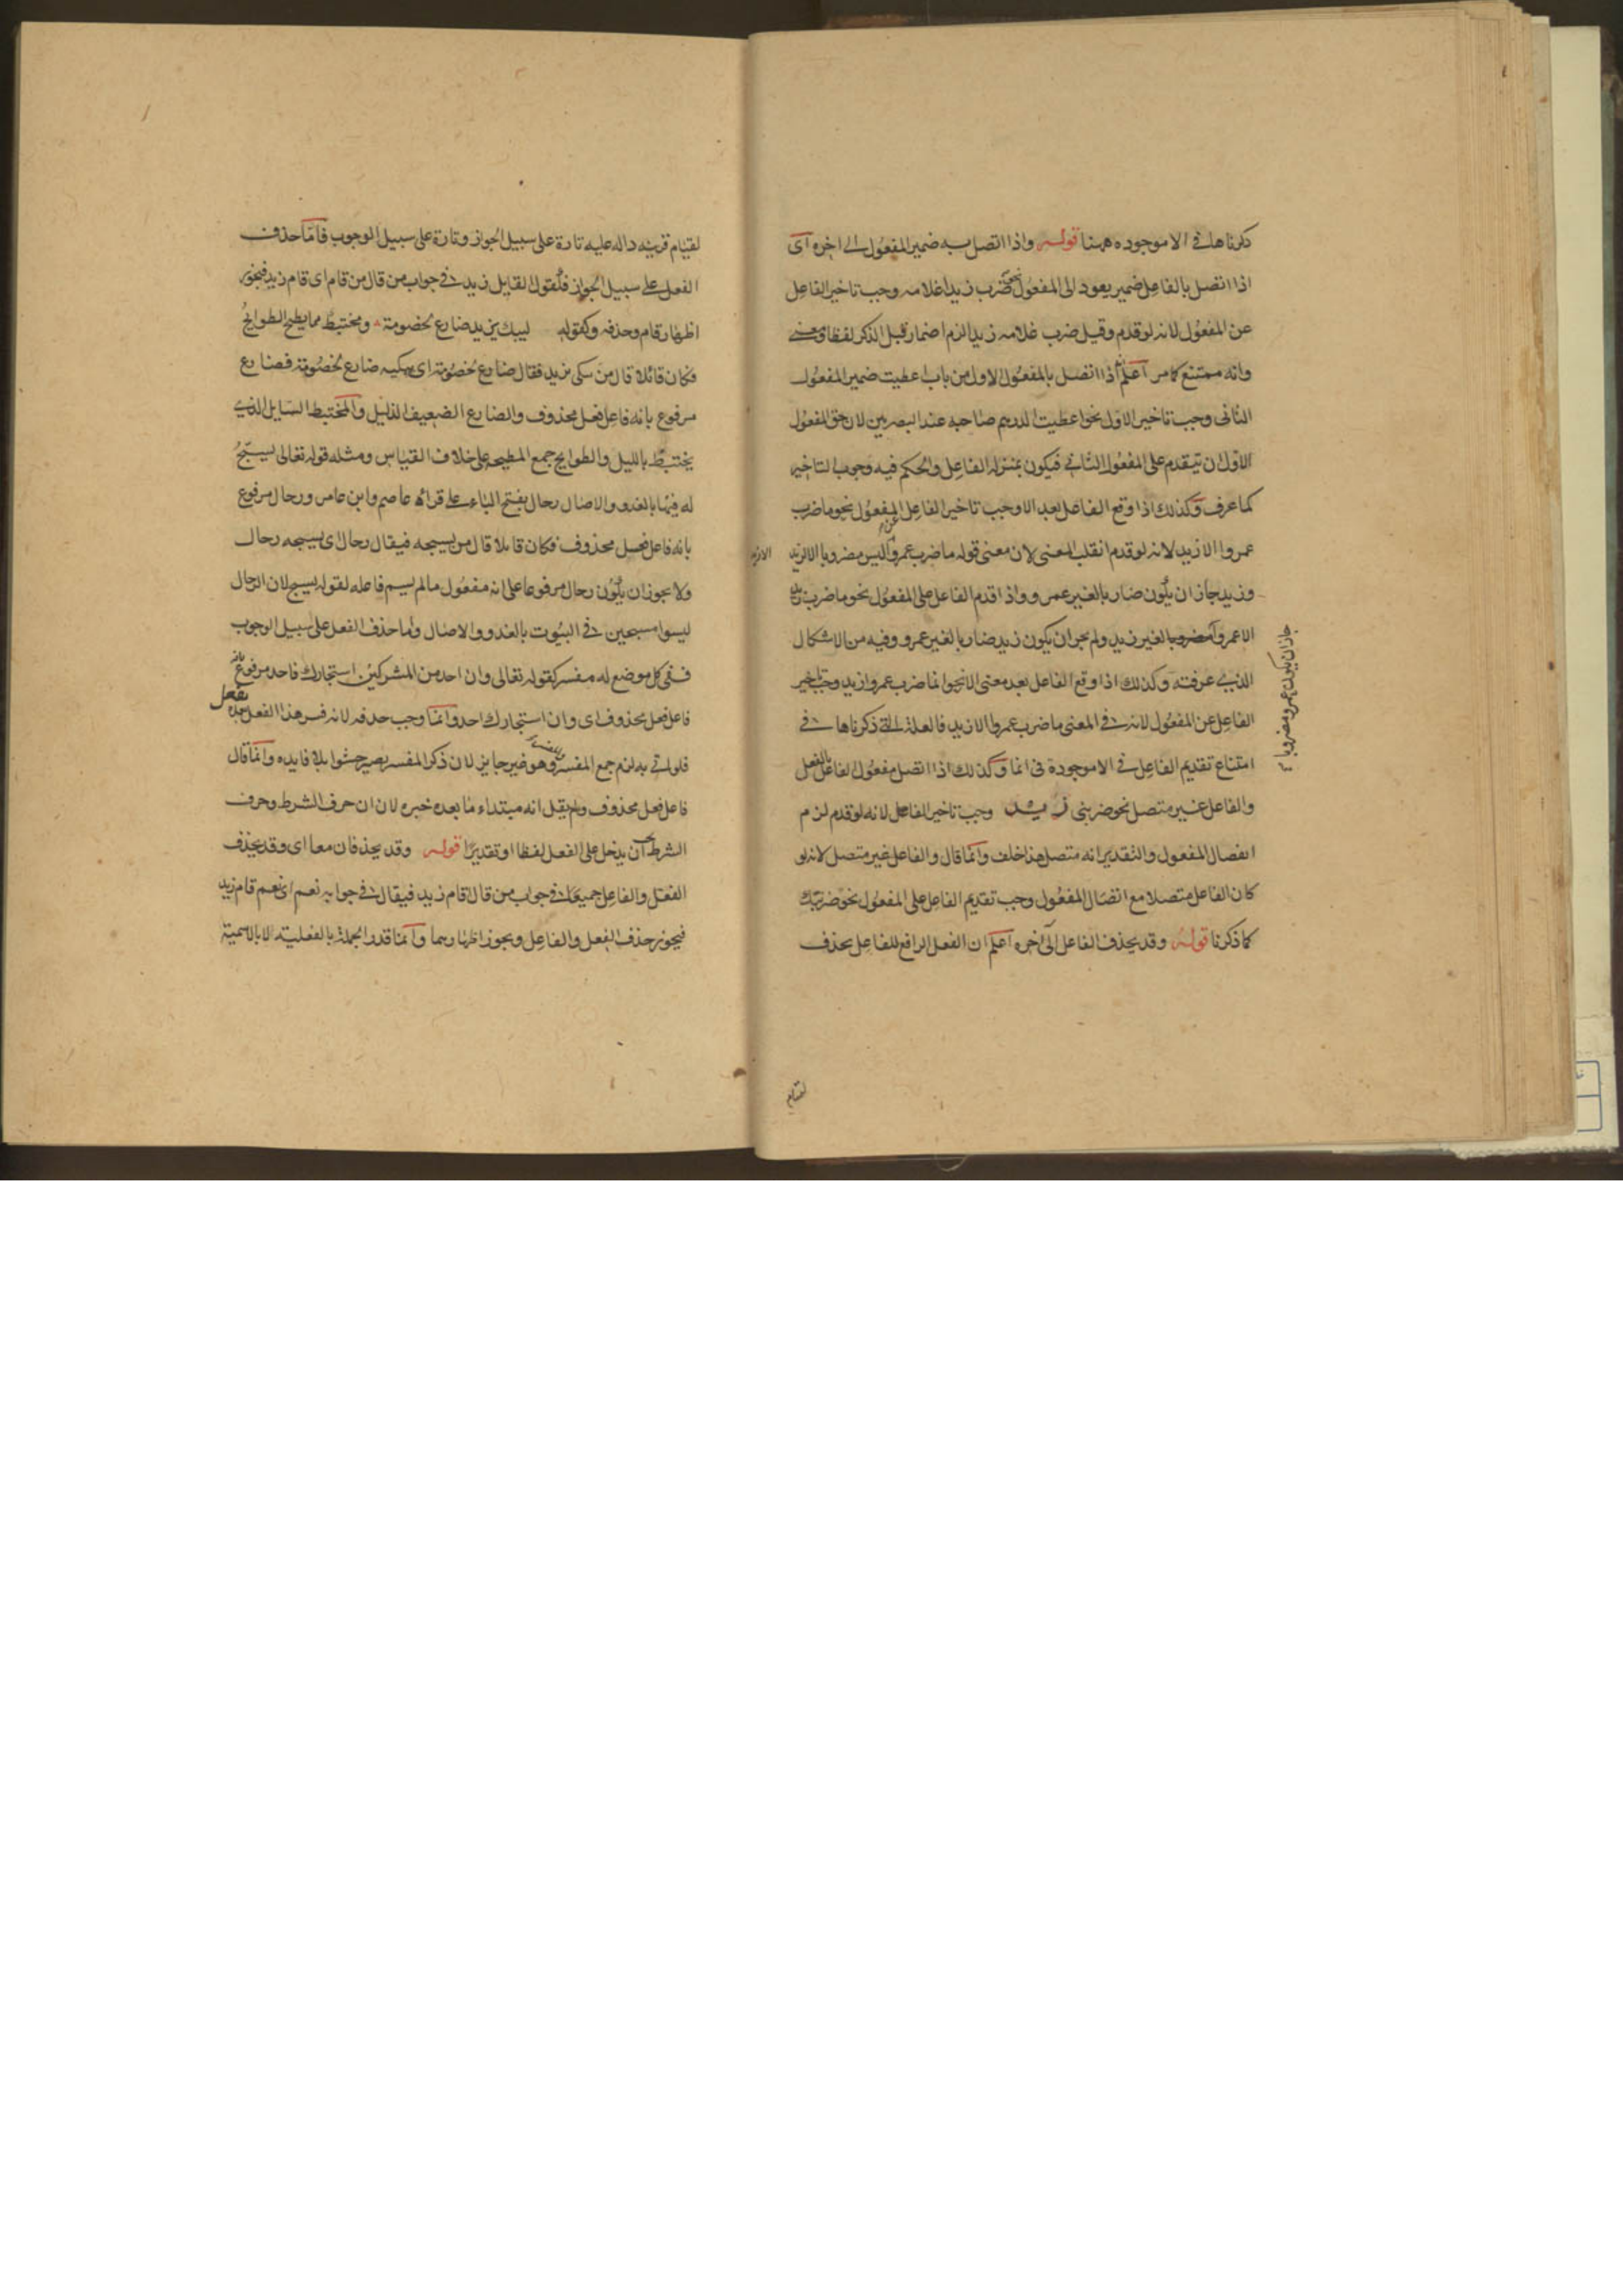 ذكرناها في الا موجوده ههنا قوله واذا اتصل به ضمير المفعول الى اخره اى
اذا اتصل بالفاعل ضمير يعود الى المفعول نحو ضرب زيدا غلامه وجب تاخير الفاعل
عن المفعول لانه لو قدم وقيل ضرب غلامه زيدا لزم اضمار قبل الذكر لفظا ومعنى
وانه ممتنع كما مر اعلم اذا اتصل بالمفعول الاول من باب اعطيت ضمير المفعول
الثانى وجب تاخير الاول نحو اعطيت الدرهم صاحبه عند البصريين لان حق المفعول
الاول ان يتقدم على المفعول الثانى فيكون بمنزله الفاعل والحكم فيه وجوب التاخير
كما عرف وكذلك اذا وقع الفاعل بعد الا وجب تاخير الفاعل المفعول نحو ما ضرب
عن
عمروا الا زيد لانه لو قدم انقلب المعنى لان معنى قوله ما ضرب عمروا ليس مضروبا الا لزيد
وزيد جاز ان يكون ضاربا لغير عمرو واذا قدم الفاعل على المفعول نحو ما ضرب زيد
الا عمروا مضروبا لغير زيد ولم يجز ان يكون زيد ضاربا لغير عمرو وفيه من الاشكال
جاز ان يكون عمرو مضروبا
الذى عرفته وكذلك اذا وقع الفاعل بعد معنى الا نحو انما ضرب عمروا زيد وجب تاخير
الفاعل عن المفعول لانه في المعنى ما ضرب عمروا الا زيد فالعلة التى ذكرناها في
امتناع تقديم الفاعل في الا موجودة في انما وكذلك اذا اتصل مفعول الفاعل بالفعل
والفاعل غير متصل نحو ضربنى زيد وجب تاخير الفاعل لانه لو قدم لزم
انفصال المفعول والتقدير انه متصل هذا خلف وانما قال والفاعل غير متصل لانه لو
كان الفاعل متصلا مع اتصال المفعول وجب تقديم الفاعل على المفعول نحو ضربتك
كما ذكرنا قوله وقد يحذف الفاعل الى اخره اعلم ان الفعل الرافع للفاعل يحذف
لقيام
لقيام قرينه داله عليه تارة على سبيل الجواز وتارة على سبيل الوجوب فاما حذف
الفعل على سبيل الجواز فلقول القايل زيد في جواب من قال من قام اى قام زيد فيجوز
اظهار قام وحذفه وكقوله ليبك يزيد ضارع لخصومة ومختبط مما يطيح الطوايح
فكان قائلا قال من يبكى يزيد فقال ضارع لخصومة اى يبكيه ضارع لخصومة فضارع
مرفوع بانه فاعل فعل محذوف والضارع الضعيف الذليل والمختبط السايل الذى
يختبط بالليل والطوايح جمع المطيحه على خلاف القياس ومثله قوله تعالى يسبح
له فيها بالغدو والاصال رجال بفتح الباء على قراه عاصم وابن عامر ورجال مرفوع
بانه فاعل فعل محذوف فكان قايلا قال من يسبحه فيقال رجال اى يسبحه رجال
ولا يجوز ان يكون رجال مرفوعا على انه مفعول ما لم يسم فاعله لقوله يسبح لان الرجال
ليسوا مسبحين في البيوت بالغدو والاصال واما حذف الفعل على سبيل الوجوب
ففى كل موضع له مفسر كقوله تعالى وان احد من المشركين استجارك فاحد مرفوع بانه
فاعل فعل محذوف اى وان استجارك احد وانما وجب حذفه لانه فسر هذا الفعل بفعل بعده
فلو اتى به لزم جمع المفسر والمفسر وهو غير جايز لان ذكر المفسر يصير حشوا بلا فايده وانما قال
فاعل فعل محذوف ولم يقل انه مبتداء ما بعده خبره لان ان حرف الشرط وحرف
الشرط يجب ان يدخل على الفعل لفظا او تقديرا قوله وقد يحذفان معا اى وقد يحذف
الفعل والفاعل جميعا في جواب من قال اقام زيد فيقال في جوابه نعم اى نعم قام زيد
فيجوز حذف الفعل والفاعل ويجوز اظهارهما وانما قدر الجملة بالفعلية لا بالاسمية